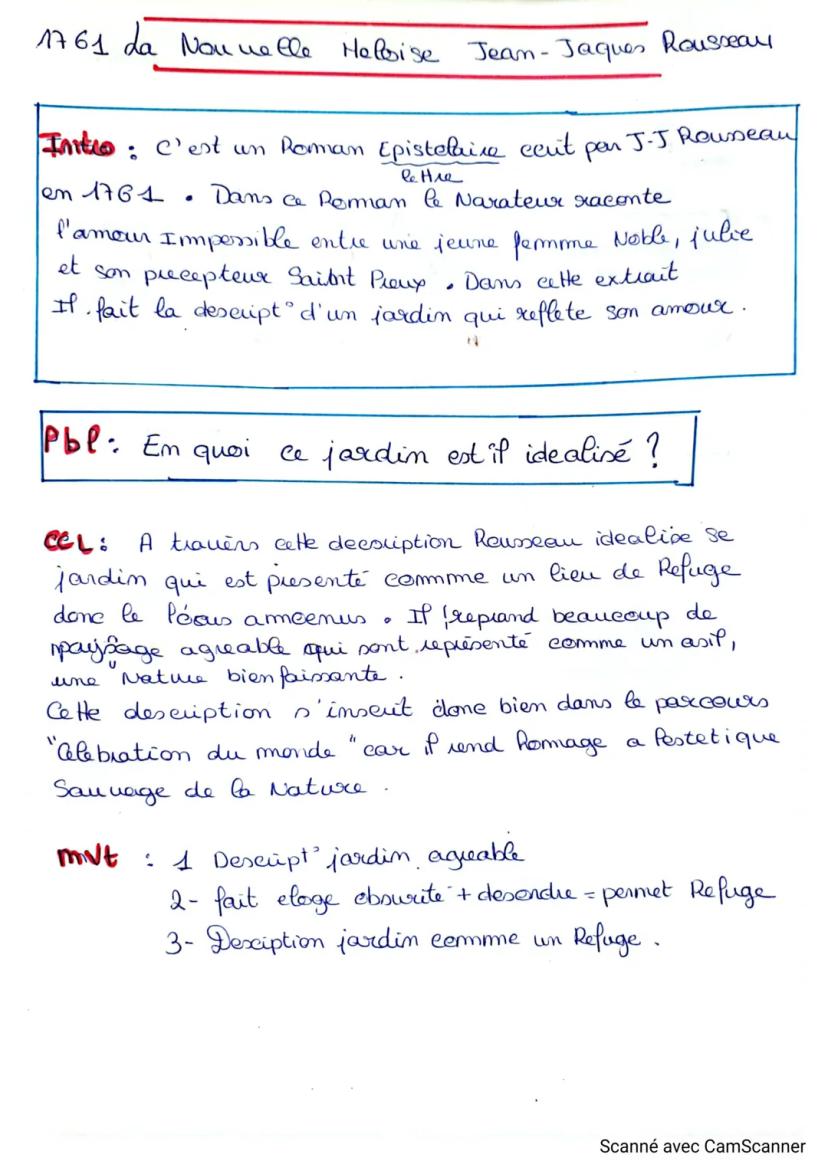 1761 La Nouvelle Heloise Jean-Jaques Rousseau
Intro : C'est un Roman Epistolaire ecrit par J-J Rousseau
lettre
en 1761 . Dans ce Roman le Narateur raconte
l'amour Impossible entre une jeune femmme Noble, julie
et son precepteur Saibnt Preux . Dans cette extrait
Il fait la descript° d'un jardin qui reflete son amour .
Pbl : En quoi ce jardin est il idealisé ?
CCL : A travers cette decsription Rousseau idealise se
jardin qui est presenté commme un lieu de Refuge
donc le locus armoenus . Il reprand beaucoup de
paysage agreable qui sont représenté comme un asil,
une Nature bienfaissante .
Cette description s'inscrit donc bien dans le parcours
"Celebration du monde" car il rend homage a l'estetique
Sauvage de la Nature .
mvt : 1 Descript° jardin agreable
2- fait eloge obsurite + desordre = permet Refuge
3- Desciption jardin commme un Refuge .
Scanné avec CamScanner